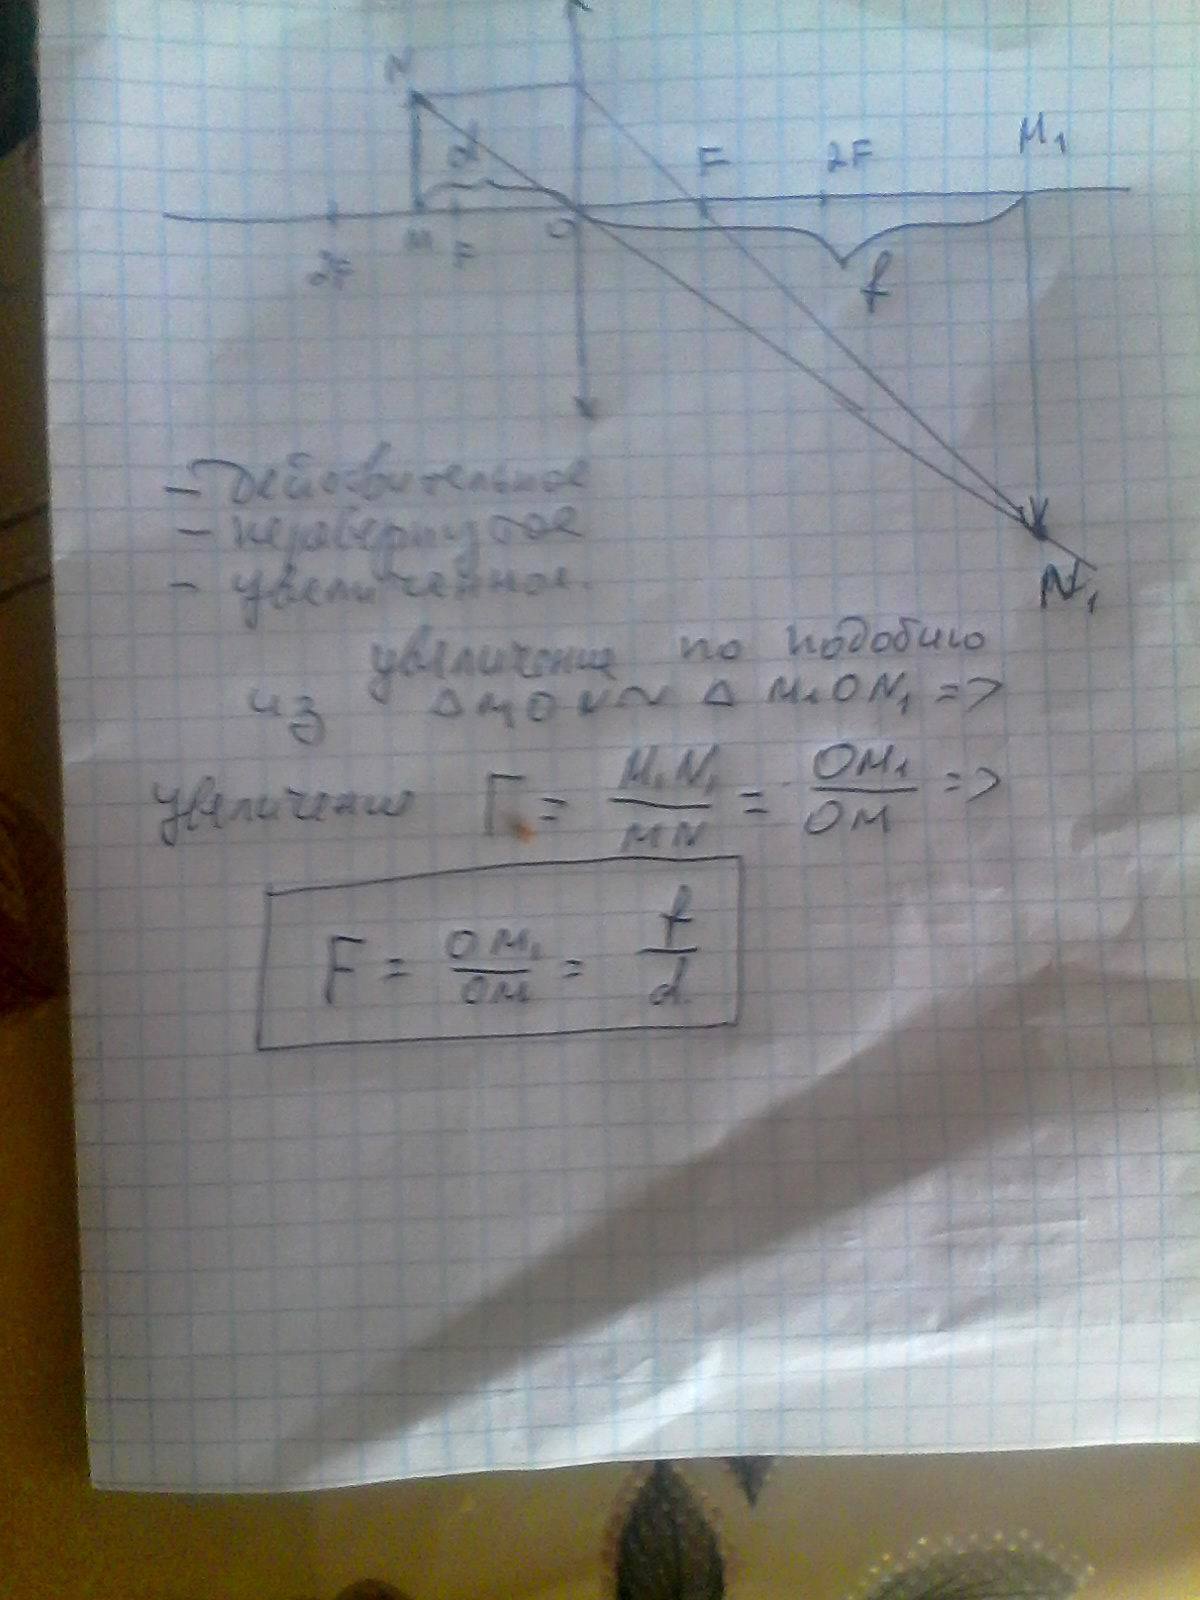 N
d
F 2F M₁
M F O
2F
f
N₁
- Действительное
- перевернутое
- увеличенное.
увеличение по подобию
из △MON ~ △ M₁ON₁ =>
увеличение Г = M₁N₁/MN = OM₁/OM =>
F = OM₁/OM = f/d.